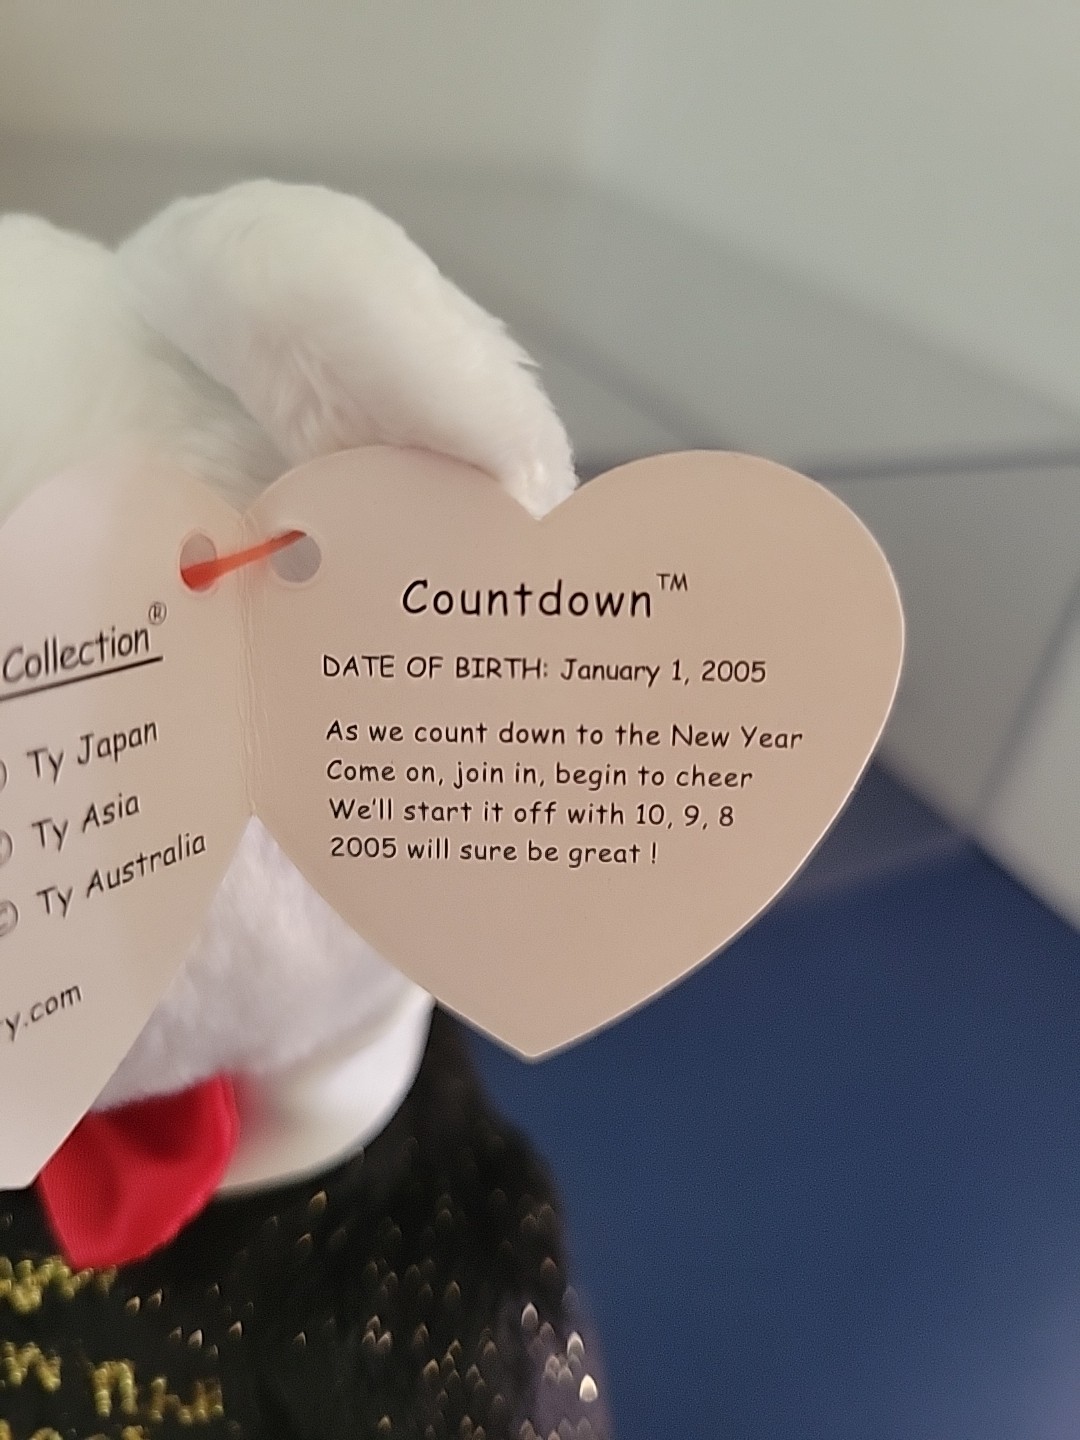 Collection®
Ty Japan
© Ty Asia
© Ty Australia
y.com
Countdown™
DATE OF BIRTH: January 1, 2005
As we count down to the New Year
Come on, join in, begin to cheer
We'll start it off with 10, 9, 8
2005 will sure be great !